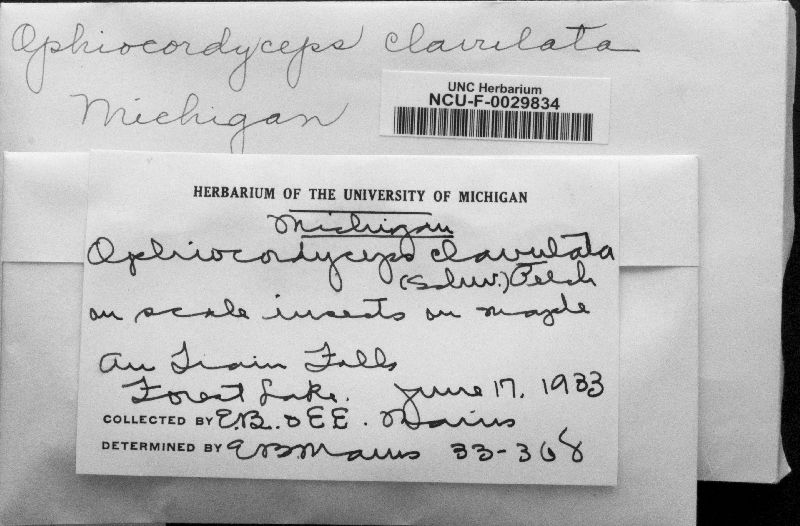 Ophiocordyceps clavulata
Michigan
UNC Herbarium
NCU-F-0029834
HERBARIUM OF THE UNIVERSITY OF MICHIGAN
Michigan
Ophiocordyceps clavulata
(Schw.) Petch
on scale insects on maple
Au Train Falls
Forest Lake. June 17, 1933
COLLECTED BY E.B. & E E. Mains
DETERMINED BY E B Mains 33-368